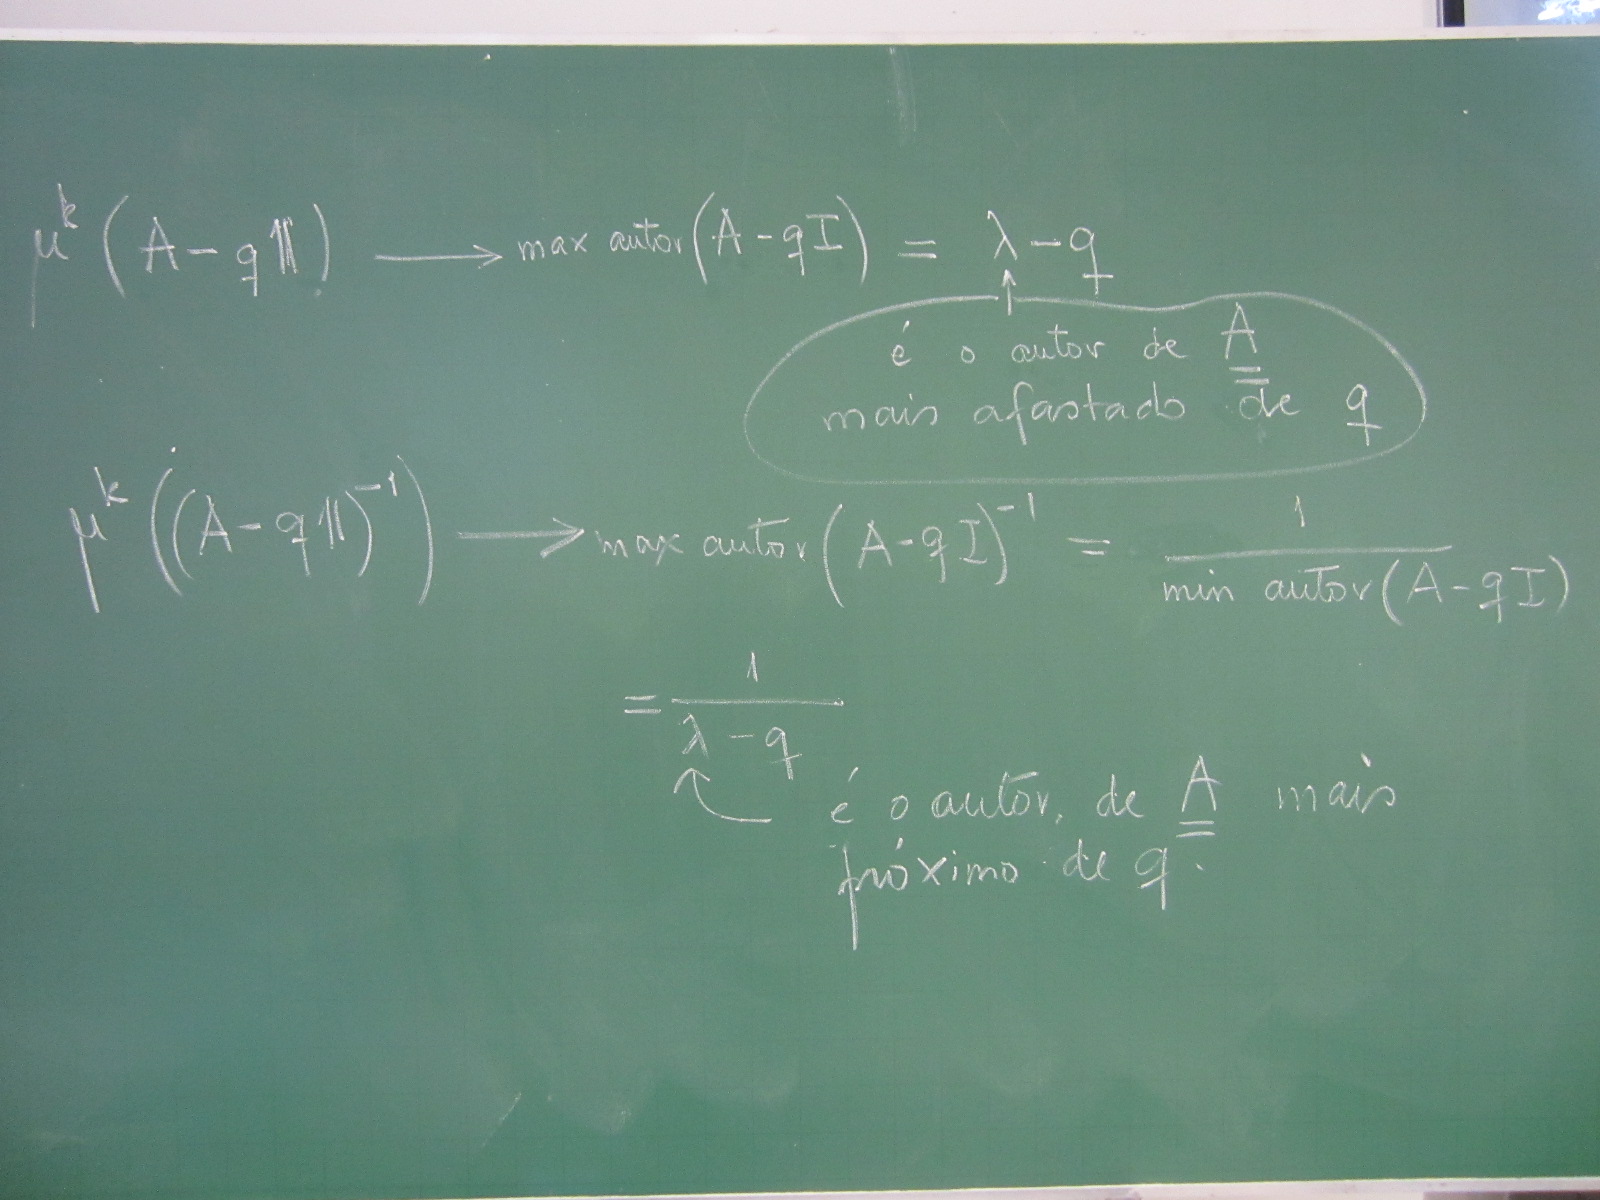 μ^k (A - q𝟙) ⟶ max autor (A - qI) = λ - q
↑
é o autor de A
mais afastado de q
μ^k ((A - q𝟙)^-1) ⟶ max autor (A - qI)^-1 = 1 / min autor (A - qI)
= 1 / λ - q
é o autor. de A mais
próximo de q.